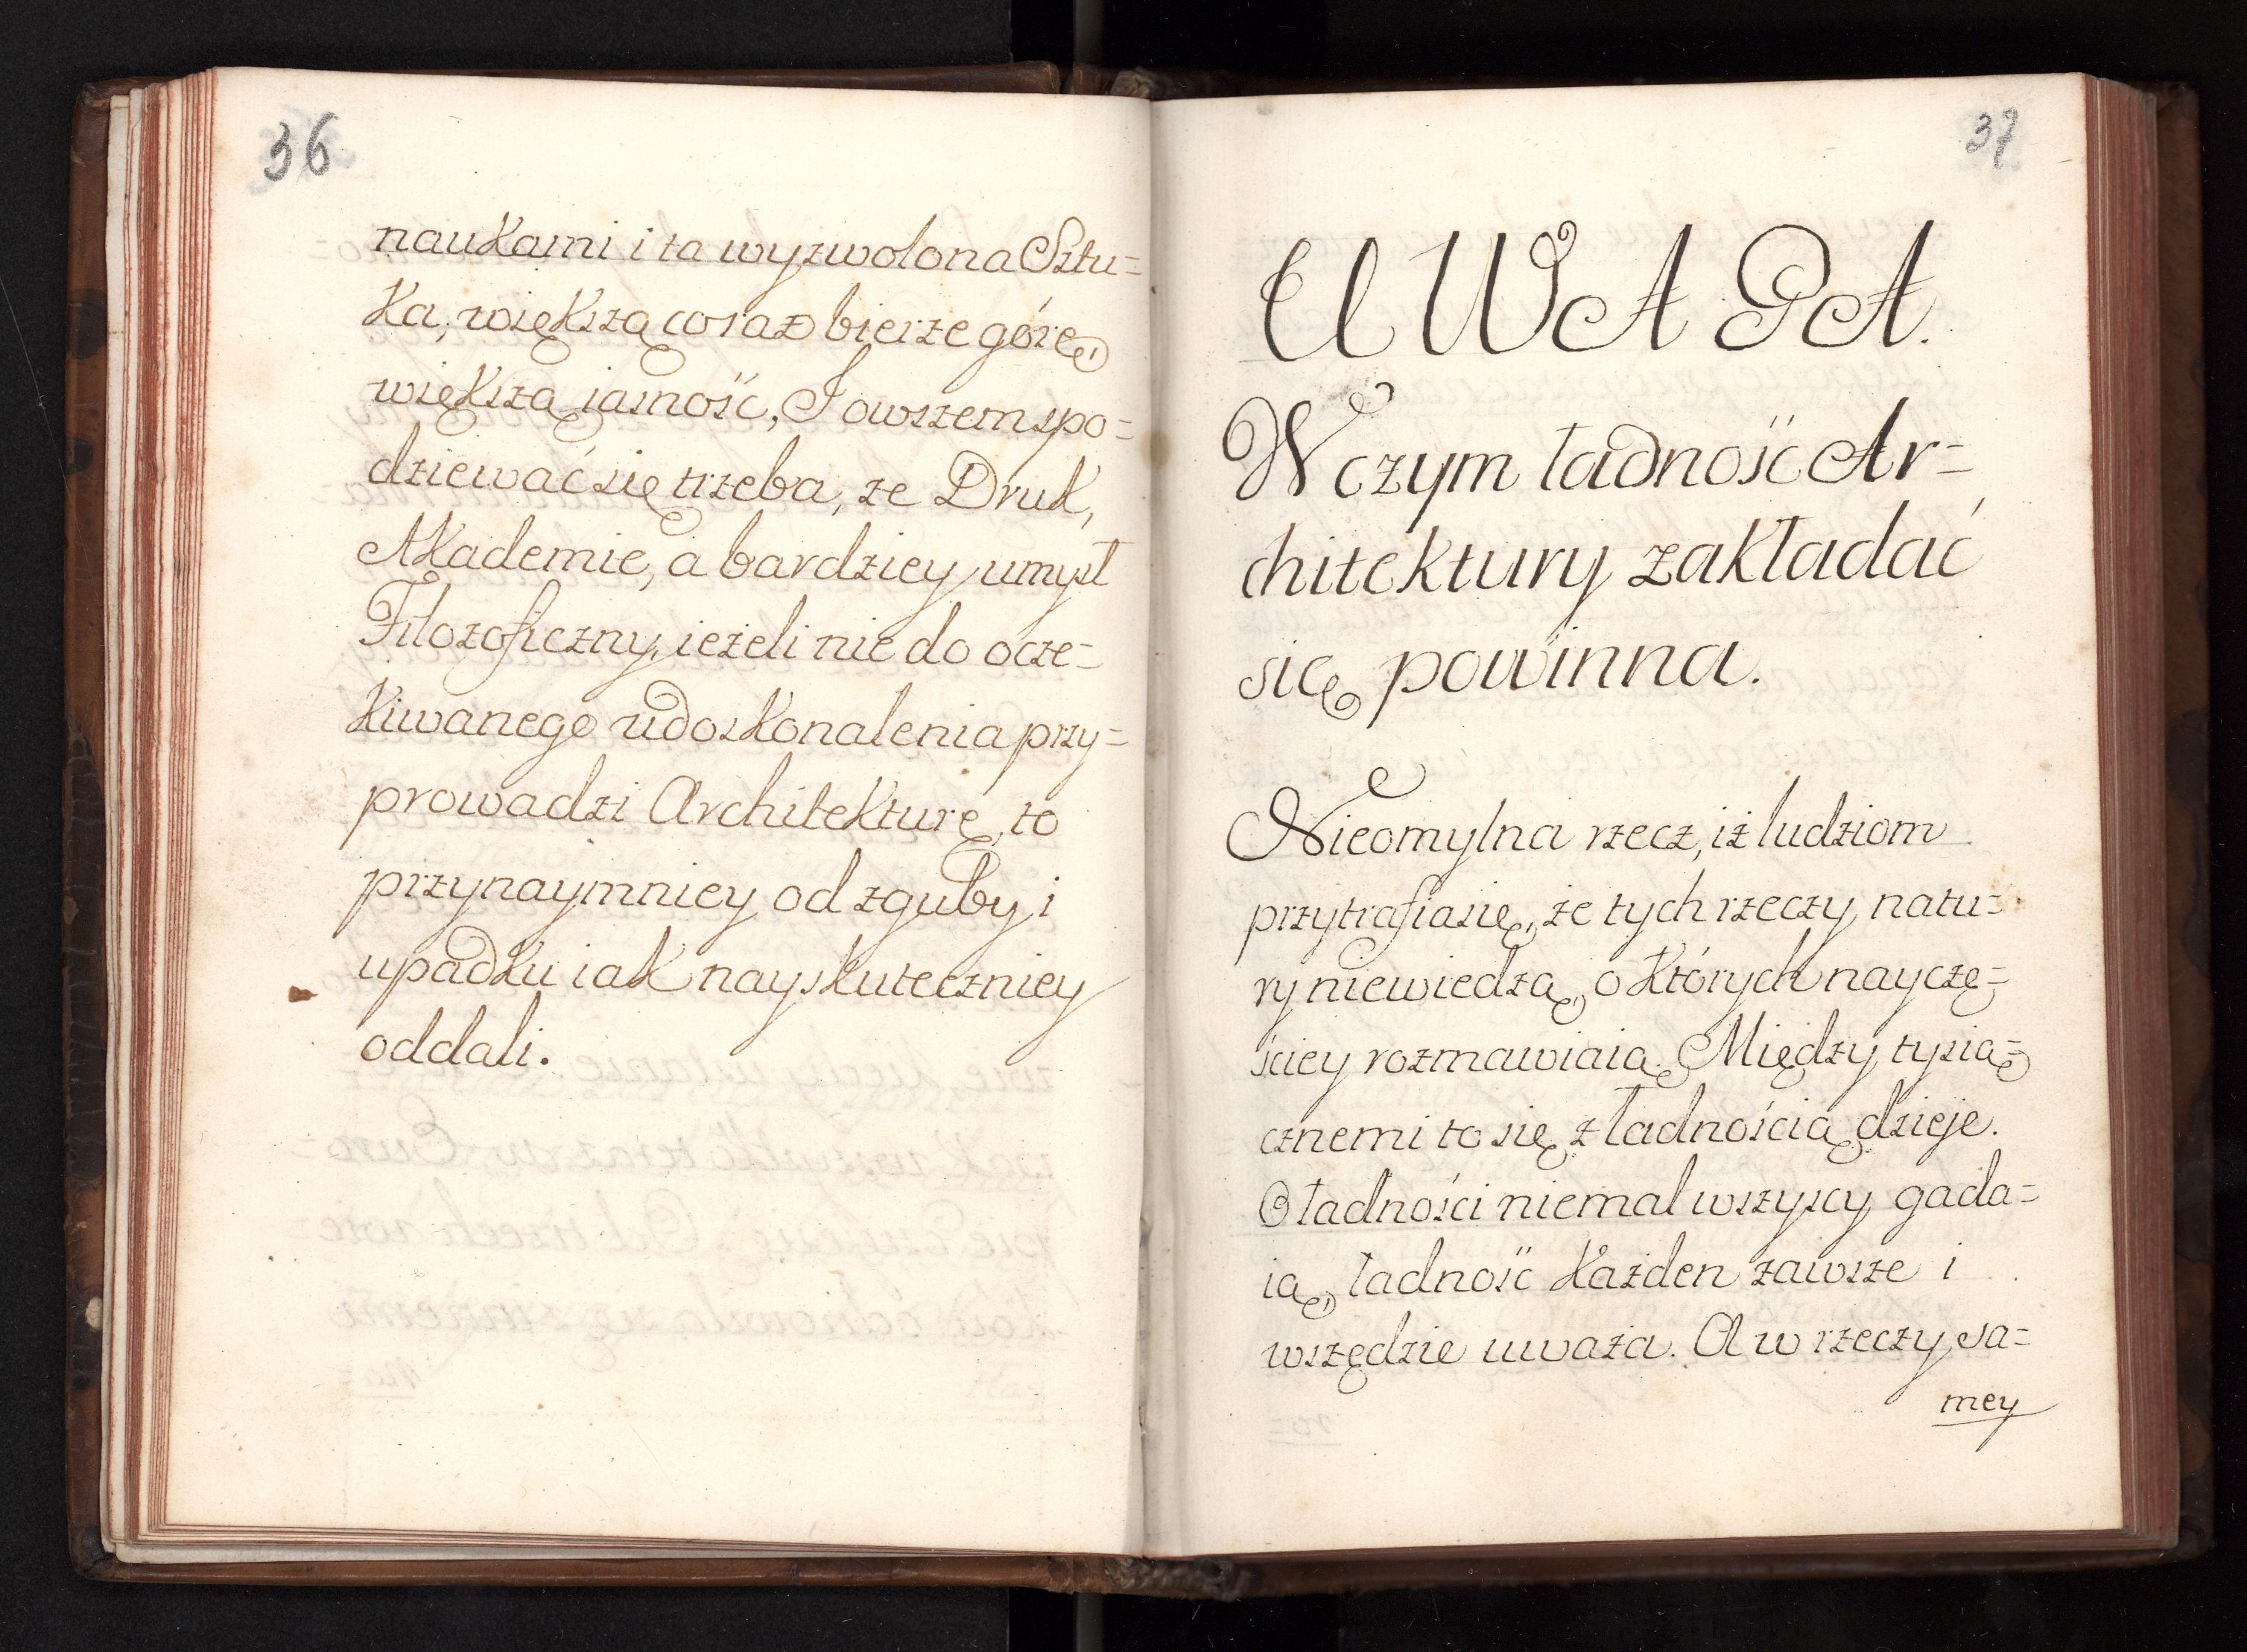 36
naukami i ta wyzwolona Sztu=
ka, większą coraz bierze górę,
większą jasność, I owszem spo=
dziewać się trzeba, że Druk,
Akademie, a bardziey umysł
Filozoficzny, ieżeli nie do ocze=
kiwanego udoskonalenia przy=
prowadzi Architekturę, to
przynaymniey od zguby i
upadku iak nayskuteczniey
oddali.
37
UWAGA.
W czym ładność Ar=
chitektury zakładać
się powinna.
Nieomylna rzecz, iż ludziom
przytrafia się, że tych rzeczy natu=
ry niewiedzą, o których nayczę=
ściey rozmawiaią. Między tysią=
cznemi to się z ładnością dzieje.
O ładności niemal wszyscy gada=
ią, ładność każden zawsze i
wszędzie uważa. A w rzeczy sa=
mey